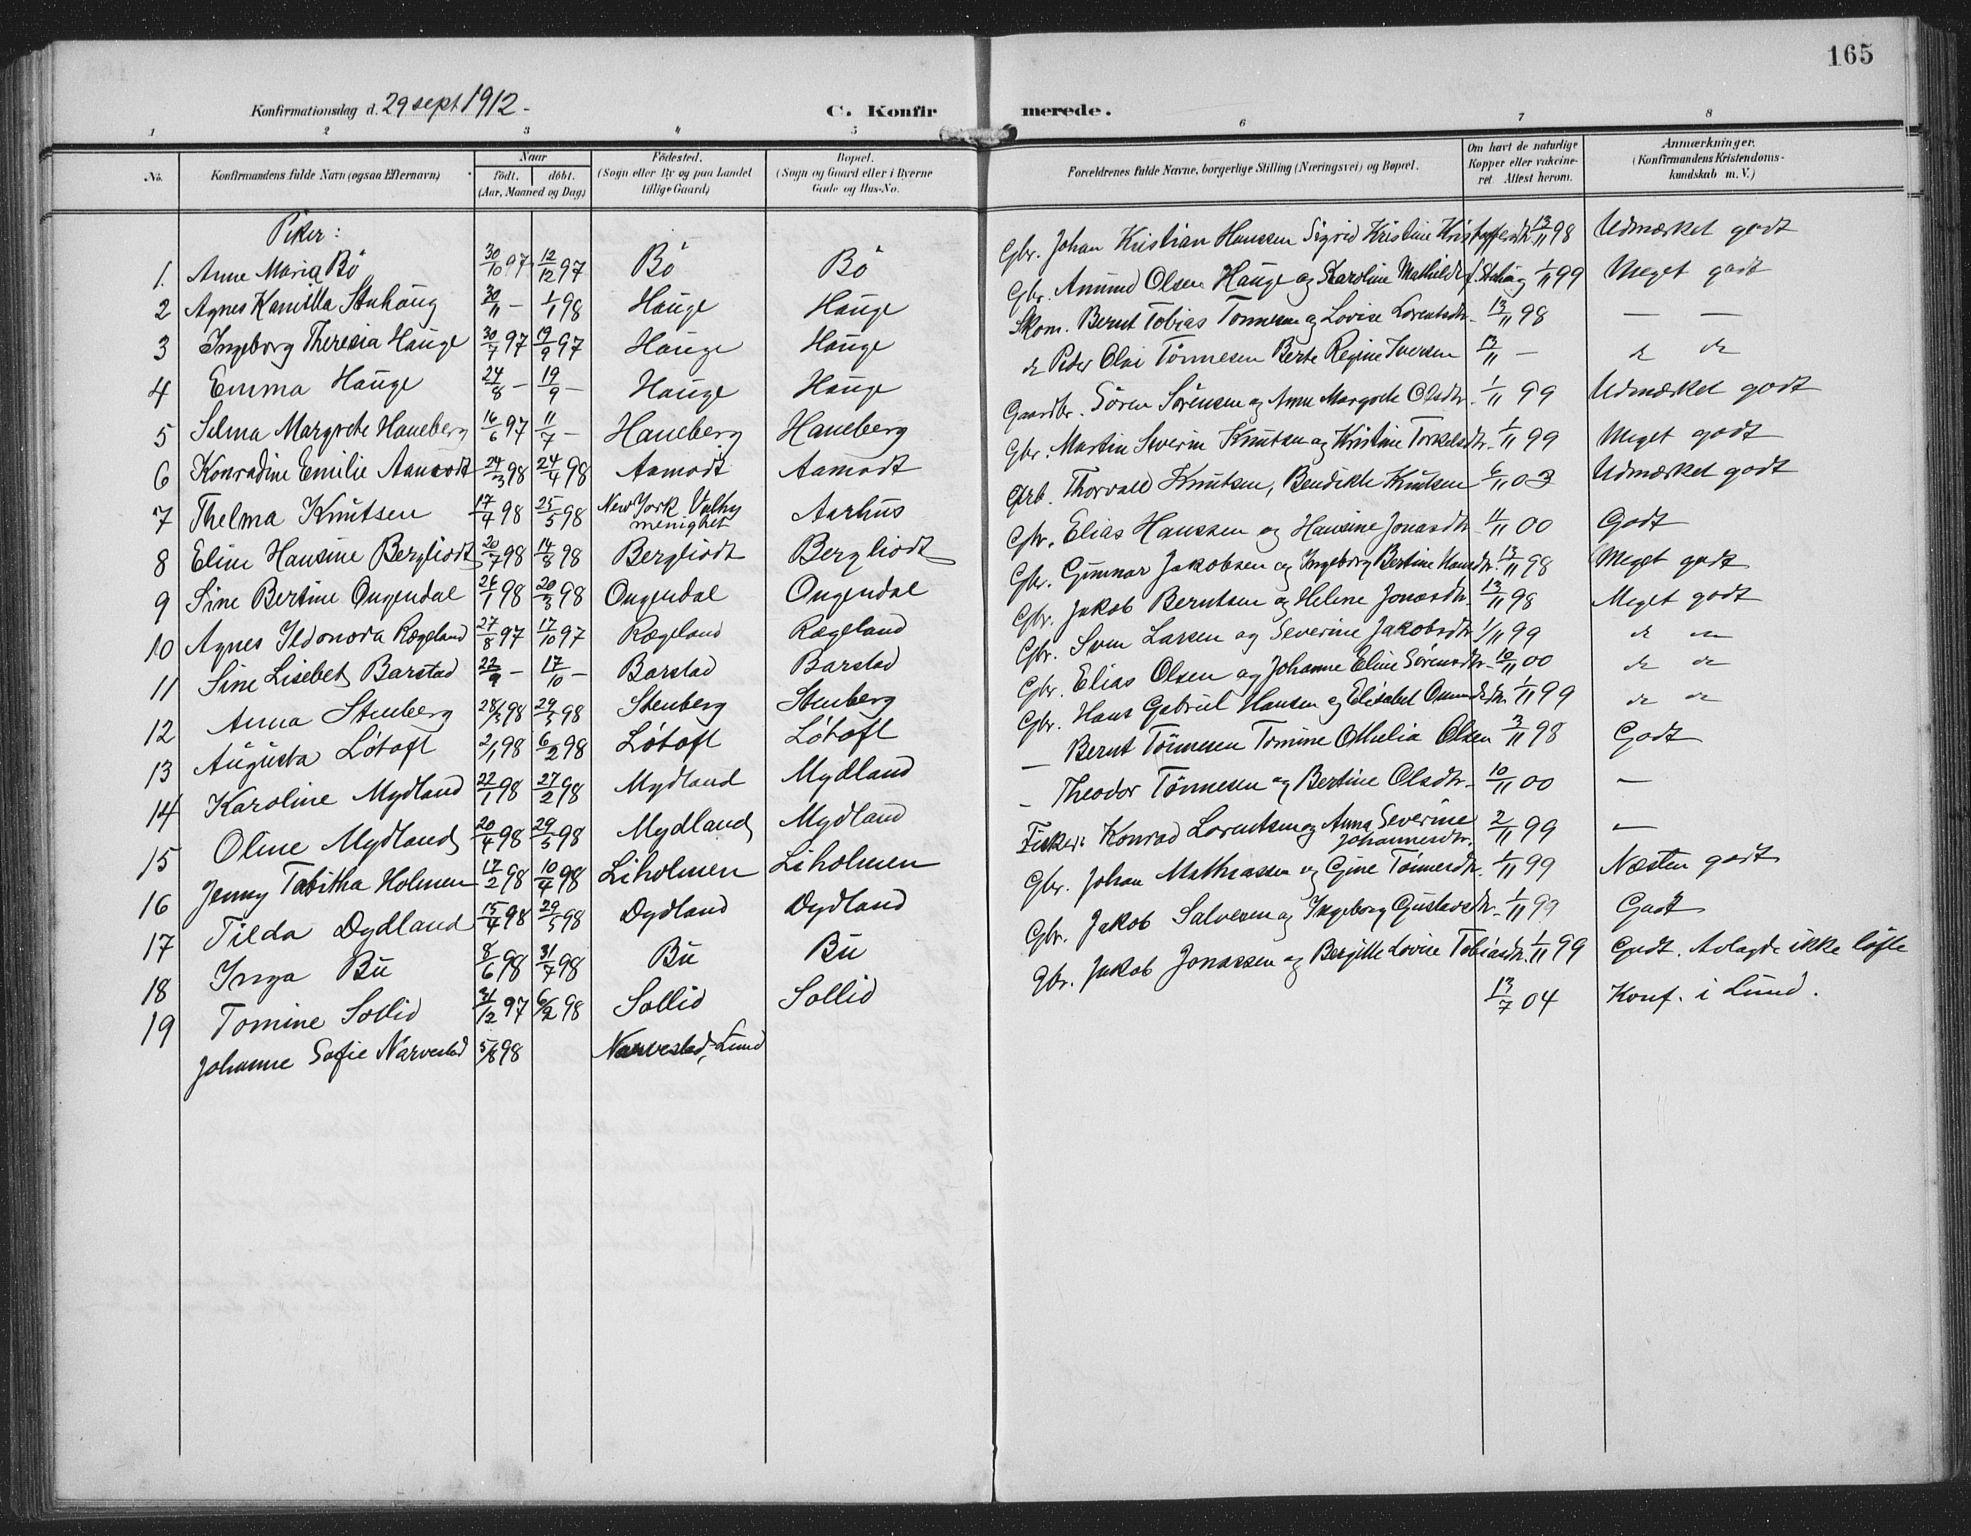 165
Konfirmationsdag d. 29 sept 1912.
C. Konfirmerede.
1 2 3 4 5 6 7 8
No. Konfirmandens fulde Navn (ogsaa Efternavn) Naar født. døbt. (Aar, Maaned og Dag) Fødested. (Sogn eller By og paa Landet tillige Gaard) Bopæl. (Sogn og Gaard eller i Byerne Gade og Hus-No. Forældrenes fulde Navne, borgerlige Stilling (Næringsvei) og Bopæl. Om havt de naturlige Kopper eller vaccineret. Attest herom. Anmærkninger. (Konfirmandens Kristendomskundskab m. V.)
Piker:
1. Anne Maria Bö 30/10 97 12/12 97 Bö Bö Gbr. Johan Kristian Hanssen Sigrid Kristine 13/11 98 Udmærket godt
2 Agnes Kamilla 30/11 — 1/1 98 Hauge Hauge Gbr. Amund Olsen Hauge og Karoline Mathilde 1/11 99 Meget godt
3 Ingeborg Theresia Hauge 30/7 97 19/9 97 Hauge Hauge Skom. Bernt Tobias Tönnesen og Lovise Lorentsdtr. 13/11 98 — —
4 Emma Hauge 24/8 — 19/9 — Hauge Hauge do Peder Olai Tönnesen Berte Regine Iversen 13/11 — do do
5 Selma Margrete Haneberg 16/6 97 11/7 — Haneberg Haneberg Gaardbr. Sören Sörensen og Anne Margrete Olsdtr. 1/11 99 Udmærket godt
6 Konradine Emilie Aamodt 24/3 98 24/4 98 Aamodt Aamodt Gbr. Martin Severin Knutsen og Kristine Torkelsdtr. 1/11 99 Meget godt
7 Thelma Knutsen 17/4 98 25/5 98 New York menighet Aarhus Arb. Thorvald Knutsen, Bendikte Knutsen 6/11 03 Udmærket godt
8 Eline Hansine Bergliodt 20/7 98 14/8 98 Bergliodt Bergliodt Gbr. Elias Hanssen og Hansine Jonasdtr. 11/11 00 Godt
9 Sine Bertine Ougendal 26/1 98 20/3 98 Ougendal Ougendal Gbr. Gunnar Jakobsen og Ingeborg Bertine Hansdtr. 13/11 98 Meget godt
10 Agnes Rægeland 27/8 97 17/10 97 Rægeland Rægeland Gbr. Jakob Berntsen og Helene Jonasdtr. 13/11 98 Meget godt
11 Sine Lisebet Barstad 22/9 — 17/10 — Barstad Barstad Gbr. Sven Larsen og Severine Jakobsdtr. 1/11 99 do do
12 Anna Stenberg 28/3 98 29/5 98 Stenberg Stenberg Gbr. Elias Olsen og Johanne Eline Sörensdtr. 10/11 00 do do
13 Augusta Lötoft 2/1 98 6/2 98 Lötoft Lötoft Gbr. Hans Gabriel Hansen og Elisabet 1/11 99 do do
14 Karoline Mydland 22/1 98 27/2 98 Mydland Mydland — Bernt Tönnesen Tomine Othelia Olsen 3/11 98 Godt
15 Oline Mydland 20/4 98 29/5 98 Mydland Mydland — Theodor Tönnesen og Bertine Olsdtr. 10/11 00 —
16 Jenny Tabitha Holmen 17/2 98 10/4 98 Liholmen Liholmen Fisker Konrad Lorentsen og Anna Severine Johannesdtr. 2/11 99 —
17 Tilda Dydland 15/4 98 29/5 98 Dydland Dydland Gbr. Johan Mathiassen og Gine Tönnesdtr. 1/11 99 Næsten godt
18 Inga Bu 8/6 98 31/7 98 Bu Bu Gbr. Jakob Salvesen og Ingeborg Gustavsdtr. 1/11 99 Godt
19 Tomine Sollid 31/12 97 6/2 98 Sollid Sollid Gbr. Jakob Jonassen og Bergitte Lovise Tobiasdtr. 1/11 99 Godt. Avlagde ikke löfte
Johanne Sofie Narvestad 5/8 98 Narvestad, Lund 13/7 04 Konf. i Lund.